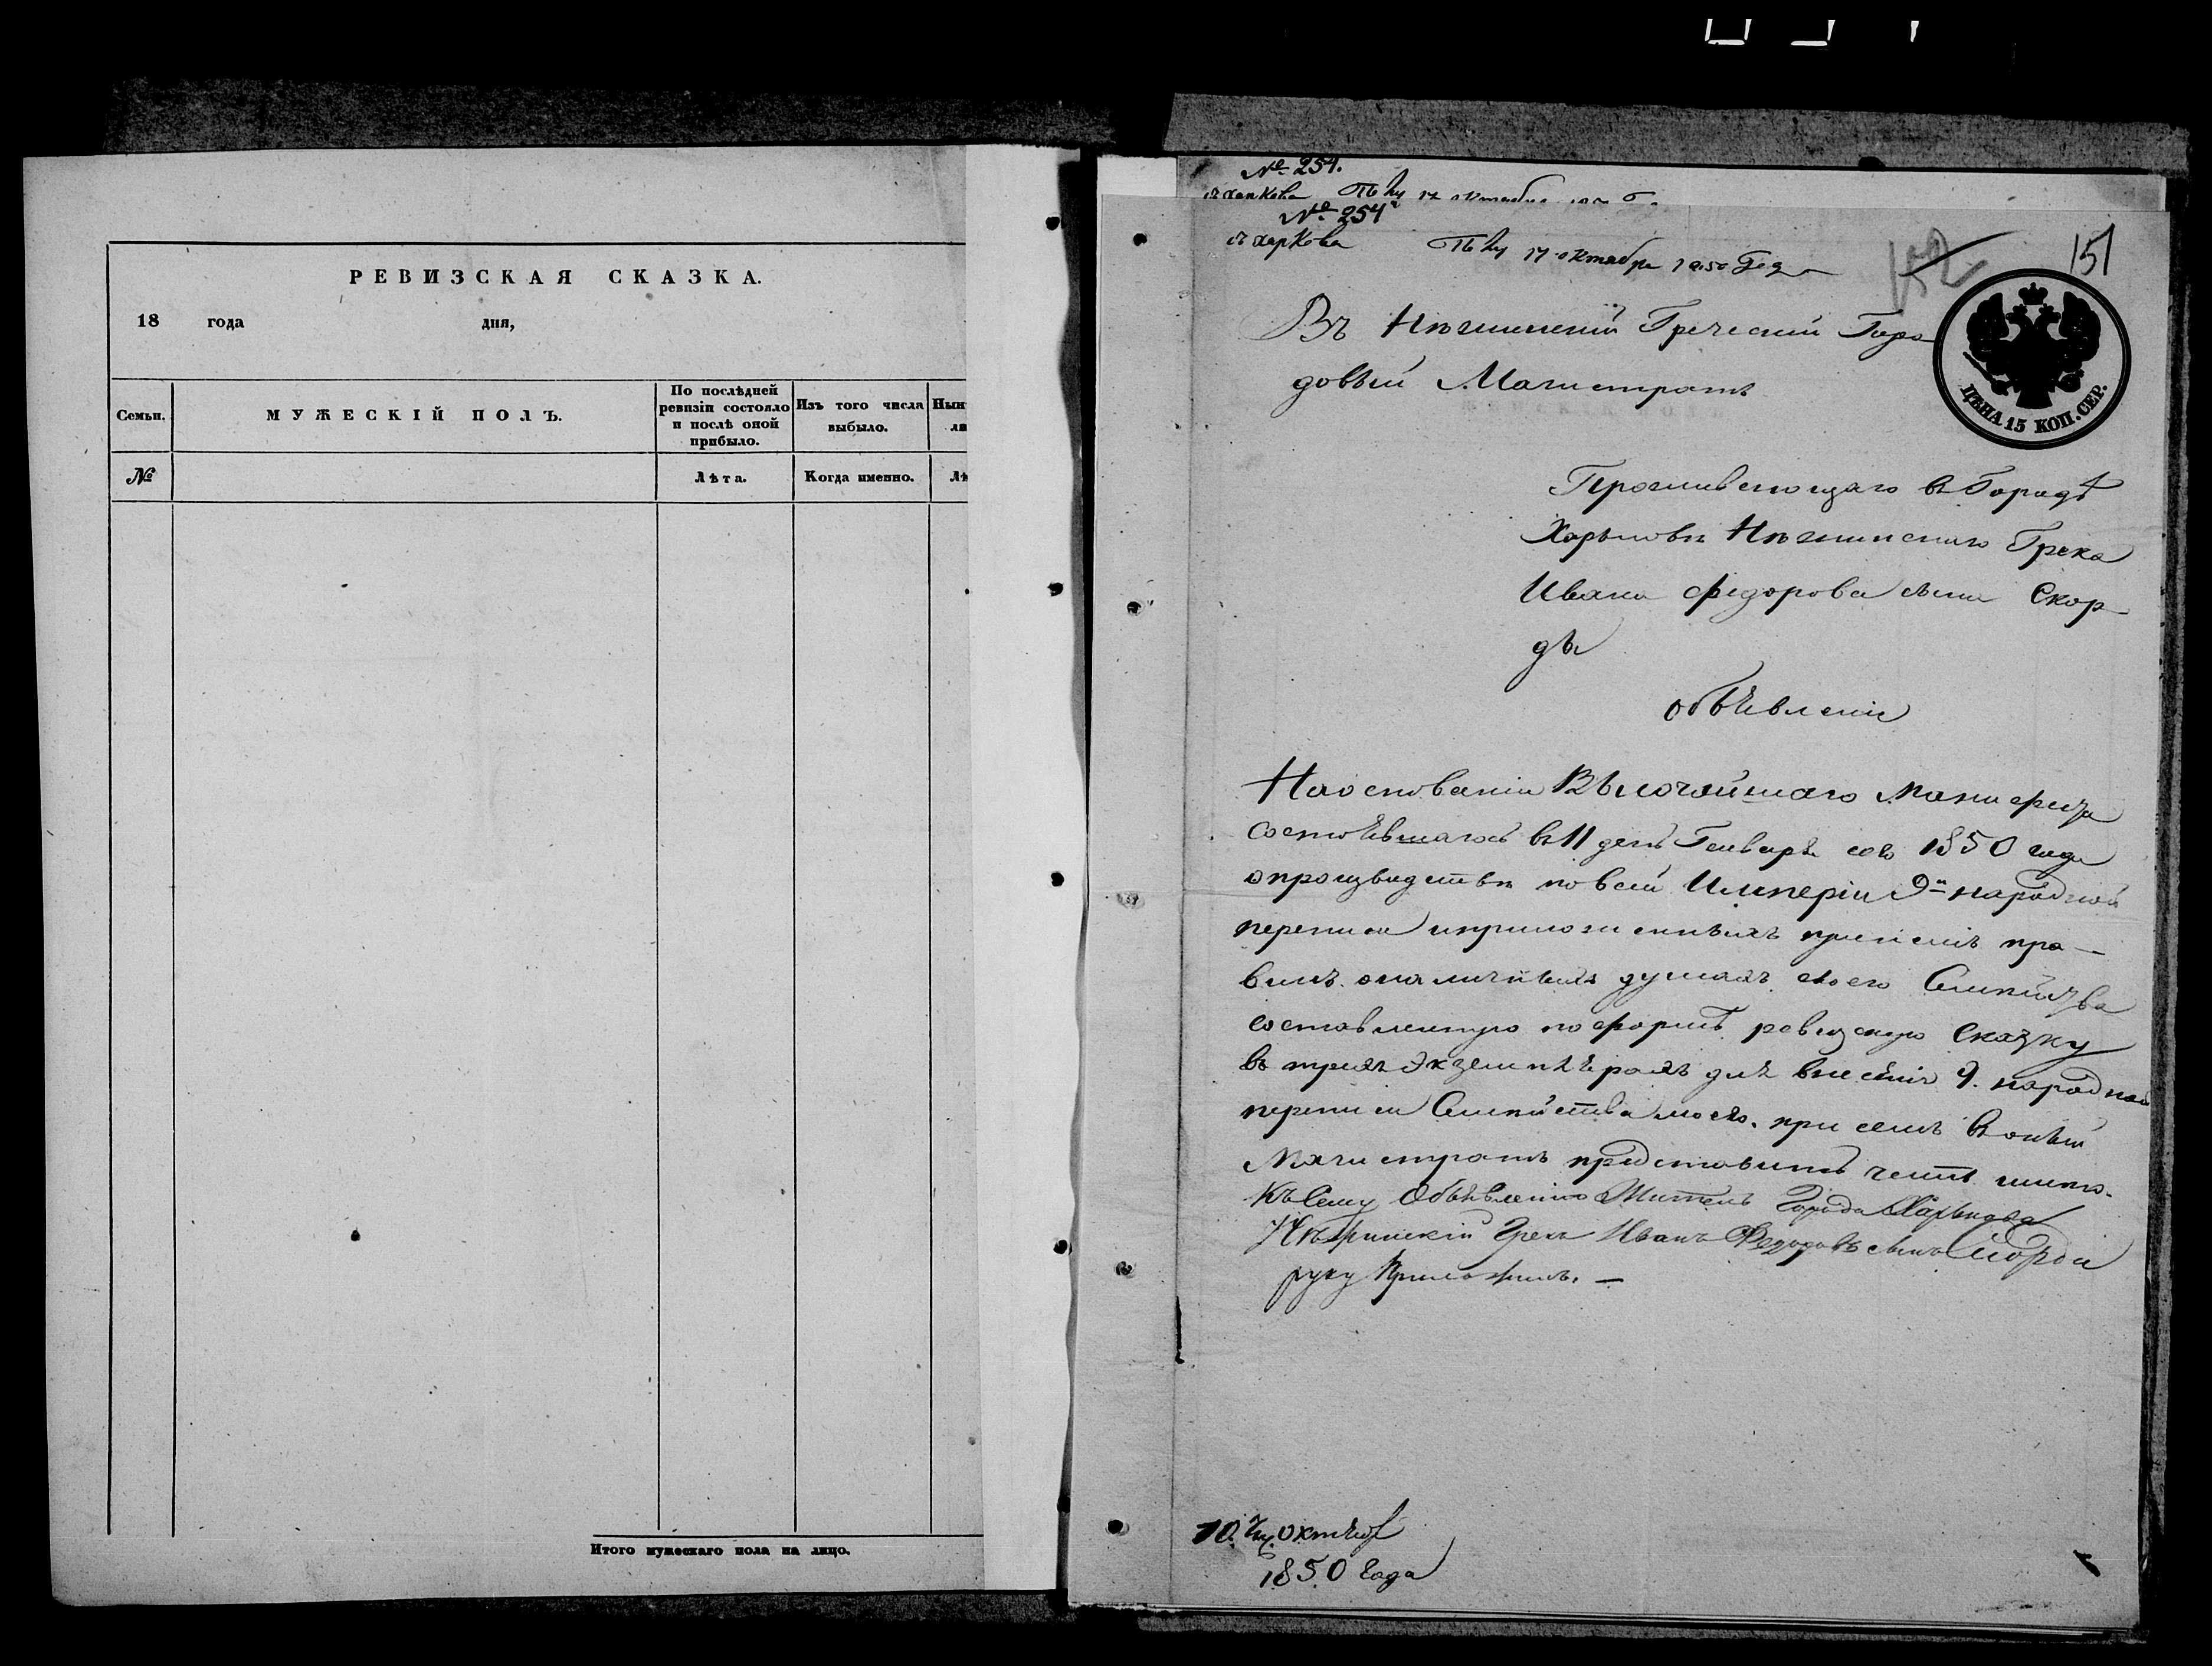 РЕВИЗСКАЯ СКАЗКА.
18 года дня,
Семьи.
МУЖЕСКІЙ ПОЛЪ.
По послѣдней
ревизіи состояло
и послѣ оной
прибыло.
Изъ того числа
выбыло.
Нын
ли
№
Лѣта.
Когда именно.
Лѣ
Итого мужескаго пола на лицо.
№ 254.
№ 254
съ Харкова
17 октября 1850 года
151
152
Въ Нѣжинскій Греческій Горо
довый Магистратъ
ЦѢНА 15 КОП. СЕР.
Проживающаго въ Городѣ
Харьковѣ Нѣжинскаго Грека
Ивана Федорова сына Скор
ды
объявленіе
На основаніи Высочайшаго Манифеста
состоявшагося въ 11 день Генваря сего 1850 года
о производствѣ по всей Имперіи 9й народной
переписи и приложенныхъ при немъ пра-
вилъ о наличныхъ душахъ своего Семейства
составленную по формѣ ревизскую сказку
въ трехъ экземплярахъ для внесенія 9. народной
переписи Семейства моего. при семъ въ оный
Магистратъ представить честь имею.
Къ Сему Объявленію Житель Города Харькова
Нѣжинскій Грекъ Иванъ Федоровъ сынъ Скорда
руку Приложилъ. —
10. октября
1850 Года